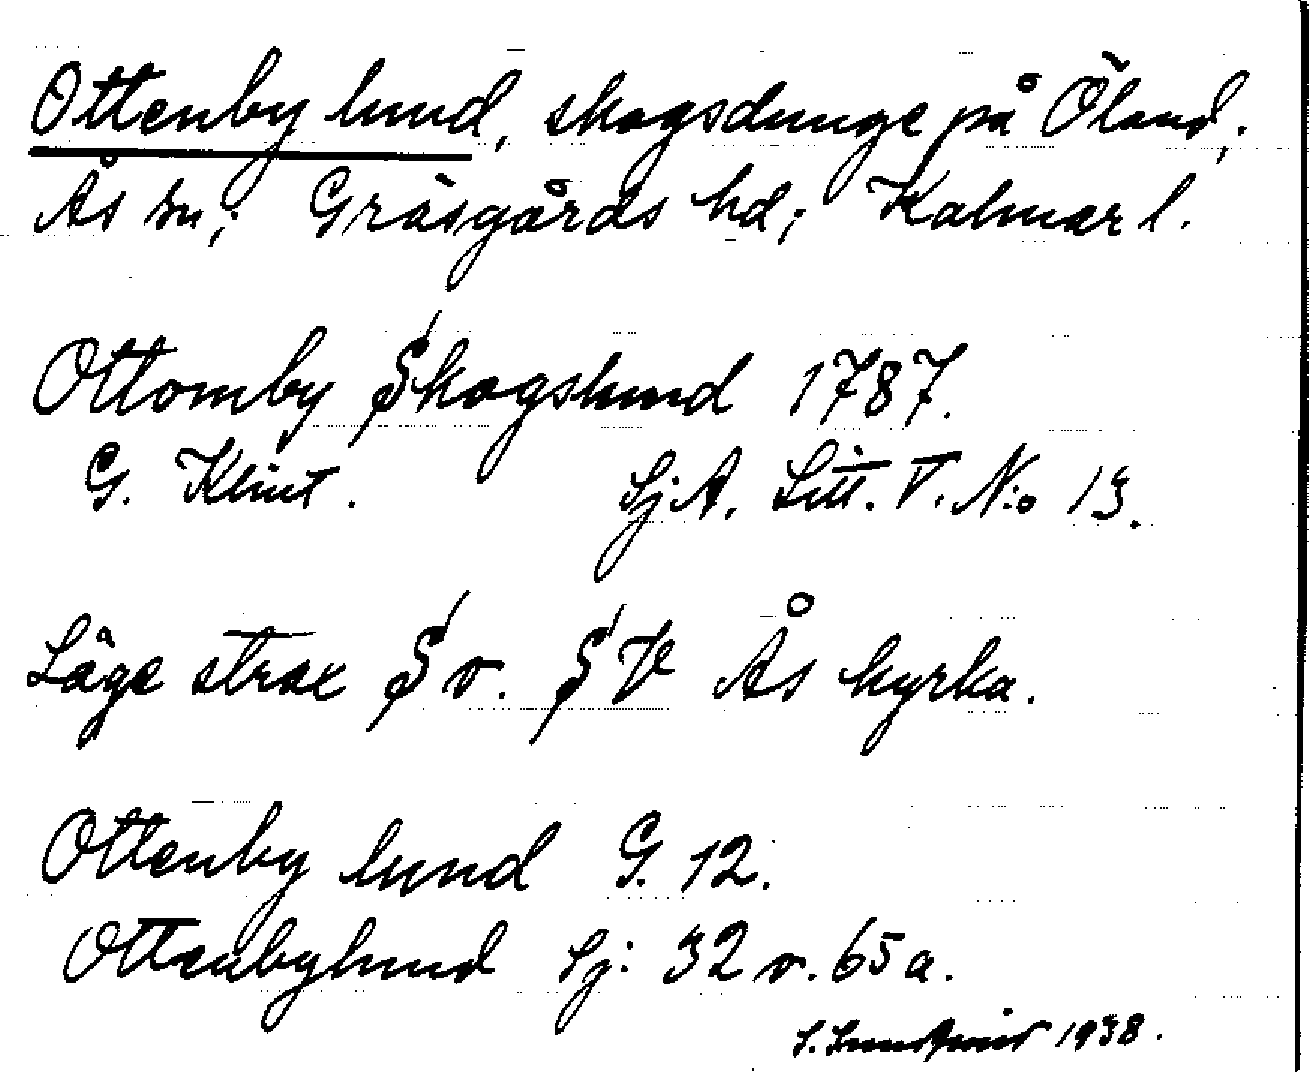 Ottenby lund, skogsdunge på Öland,
Ås sn; Gräsgårds hd; Kalmar l.
Ottomby Skogslund 1787.
G. Klint. Sj.A. Litt. V. N:o 13.
Läge strax S o. S V Ås kyrka.
Ottenby lund G. 12.
Ottenbylund Sj: 32 o. 65 a.
S. 1938.